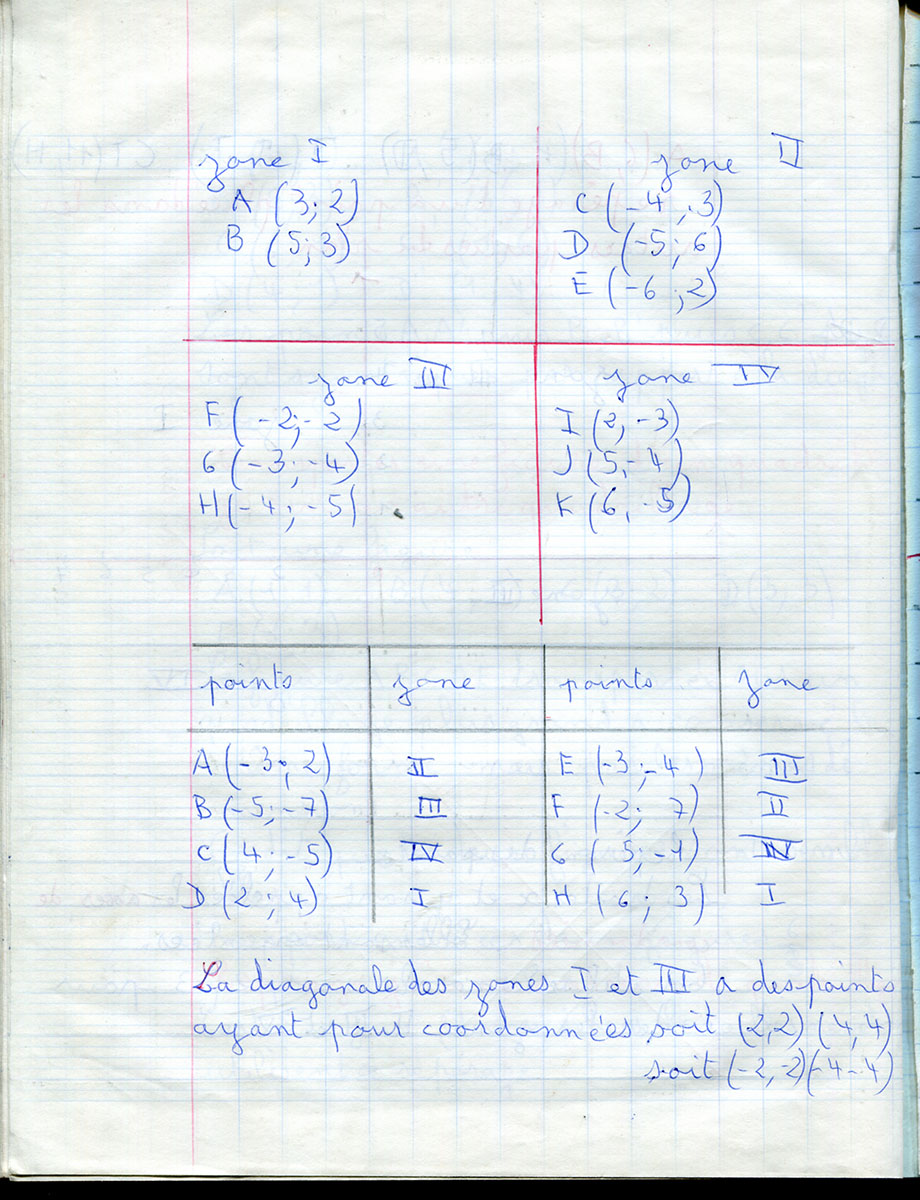 zone I
A (3; 2)
B (5; 3)
zone II
C (-4 ; 3)
D (-5 ; 6)
E (-6 ; 2)
zone III
F (-2; -2)
G (-3; -4)
H (-4; -5)
zone IV
I (2, -3)
J (5, -4)
K (6, -5)
points zone points zone
A (-3; 2) II E (-3; -4) III
B (-5; -7) III F (-2; 7) II
C (4; -5) IV G (5; -4) IV
D (2; 4) I H (6; 3) I
La diagonale des zones I et III a des points
ayant pour coordonnées soit (2,2) (4,4)
soit (-2,-2)(-4-4)